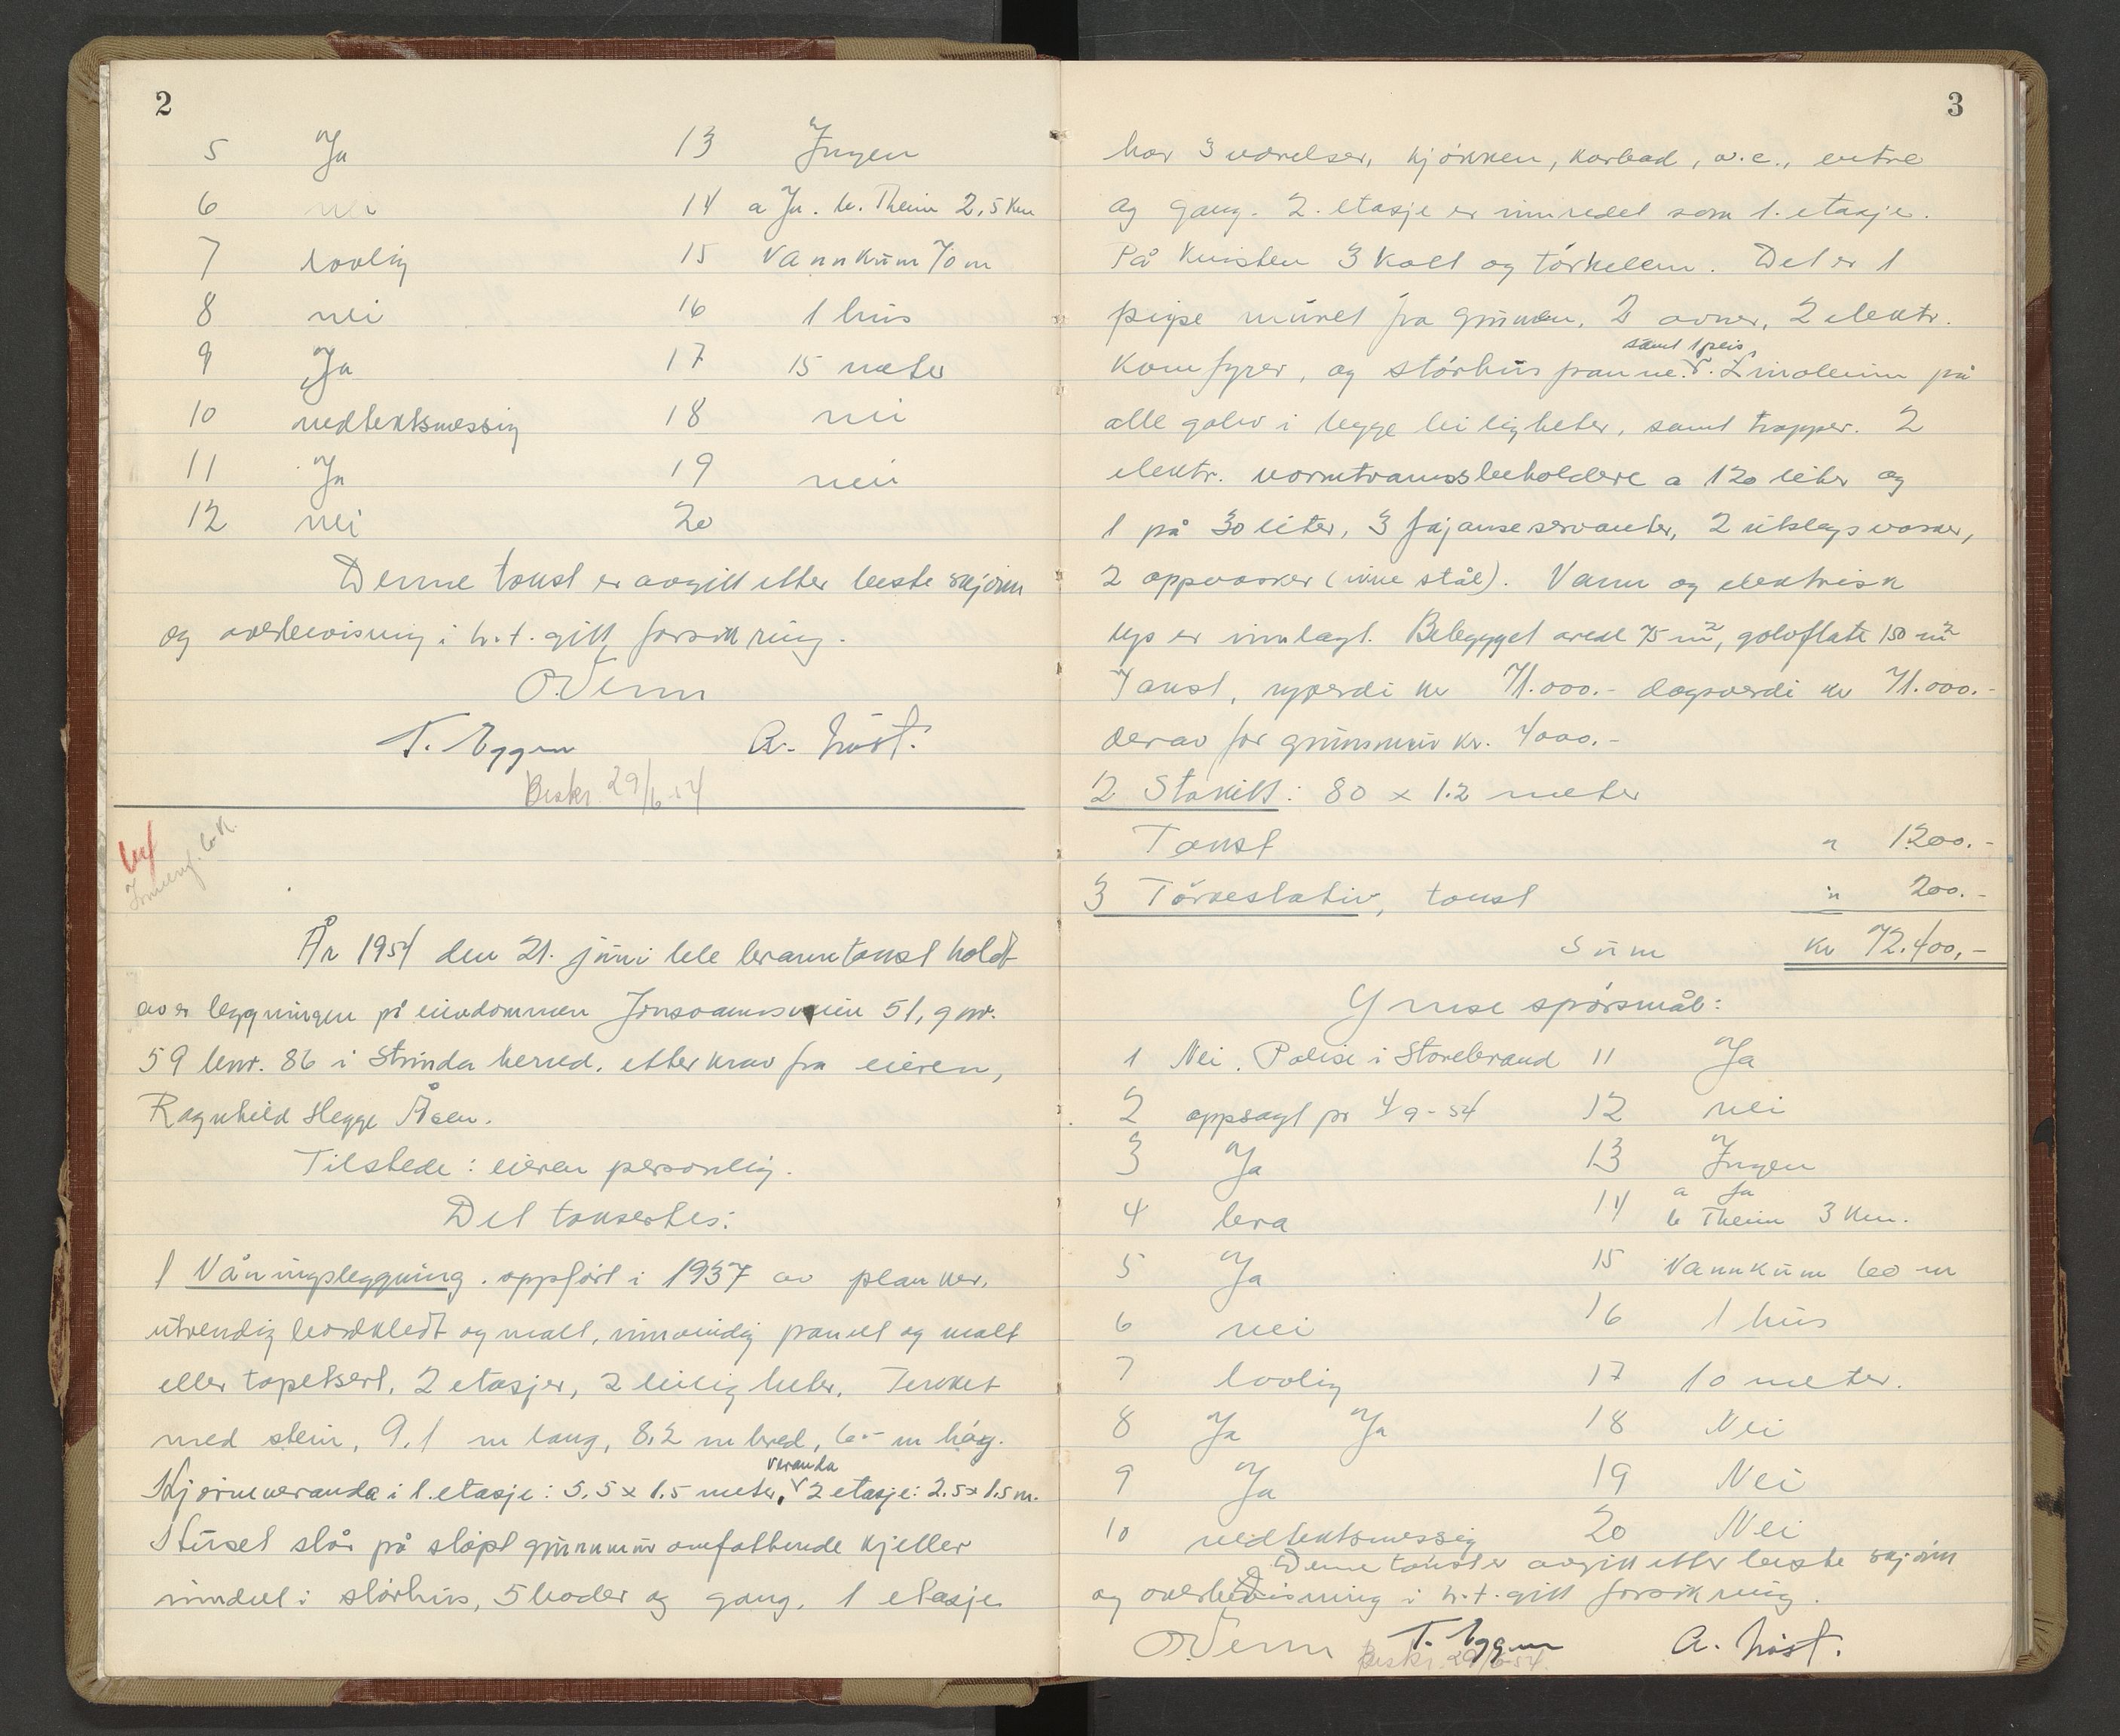 2
5 Ja 13 Ingen
6 nei 14 a Ja. b. Theim 2,5 Km
7 lovlig 15 Vannkum 70 m
8 nei 16 1 hus
9 Ja 17 15 meter
10 vedtektsmessig 18 nei
11 Ja 19 nei
12 nei 20
Denne takst er avgitt etter beste skjönn
og overbevisning i h.t. gitt forsikring.
O Venn
T. Eggen A. Høst.
Beskr. 29/6-54
År 1954 den 21. juni ble branntakst holdt
over bygningen på eiendommen Jonsvannsveien 51, gnr.
59 bnr. 86 i Strinda herred. etter krav fra eieren,
Ragnhild Hegge Åsen.
Tilstede: eieren personlig.
Det taksertes:
1 Våningsbygning. oppført i 1937 av planker,
utvendig bordkledt og malt, innvendig panelt og malt
eller tapetsert, 2 etasjer, 2 leiligheter. Tekket
med stein, 9,1 m lang, 8,2 m bred, 6.- m høg.
veranda
Hjørneveranda i 1. etasje: 5,5 x 1.5 meter, 2 etasje: 2.5 x 1.5 m.
Huset står på støpt grunnmur omfattende kjeller
inndelt i störhus, 5 boder og gang. 1 etasje
3
har 3 værelser, kjökken, karbad, w.c., entre
og gang. 2. etasje er innredet som 1. etasje.
På kvisten 3 kott og törkelem. Det er 1
pipe muret fra grunnen, 2 ovner, 2 elektr.
samt 1 peis,
Komfyrer, og störhus panne. Linoleum på
alle golv i begge leiligheter, samt trapper. 2
elektr. varmtvannsbeholdere a 120 liter og
1 på 30 liter, 3 fajanseservanter, 2 utslagsvasker,
2 oppvasker (ikke stål). Vann og elektrisk
lys er innlagt. Bebygget areal 75 m², golvflate 150 m²
Takst, nyverdi kr 71.000.- dagsverdi kr 71.000.-
derav for grunnmur kr. 4000.-
2 Stakitt: 80 x 1.2 meter
Takst " 1200.-
3 Törkestativ, takst " 200.-
Sum kr 72.400,-
Ymse spörsmål:
1 Nei. Polise i Storebrand 11 Ja
2 oppsagt pr 4/9-54 12 nei
3 Ja 13 Ingen
4 bra 14 a Ja
b Theim 3 Km.
5 Ja 15 Vannkum 60 m
6 nei 16 1 hus
7 lovlig 17 10 meter.
8 Ja Ja 18 Nei
9 Ja 19 Nei
10 vedtektsmessig 20 Nei
Denne takst er avgitt etter beste skjönn
og overbevisning i h.t. gitt forsikring.
O Venn T. Eggen A. Høst.
Beskr. 29/6-54.